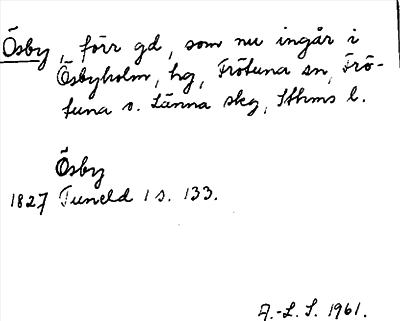 Ösby, förr gd, som nu ingår i
Ösbyholm, hg, Frötuna sn, Frö-
tuna o. Länna skg, Sthms l.
Ösby
1827 Tuneld 1 s. 133.
A.-L. S. 1961.